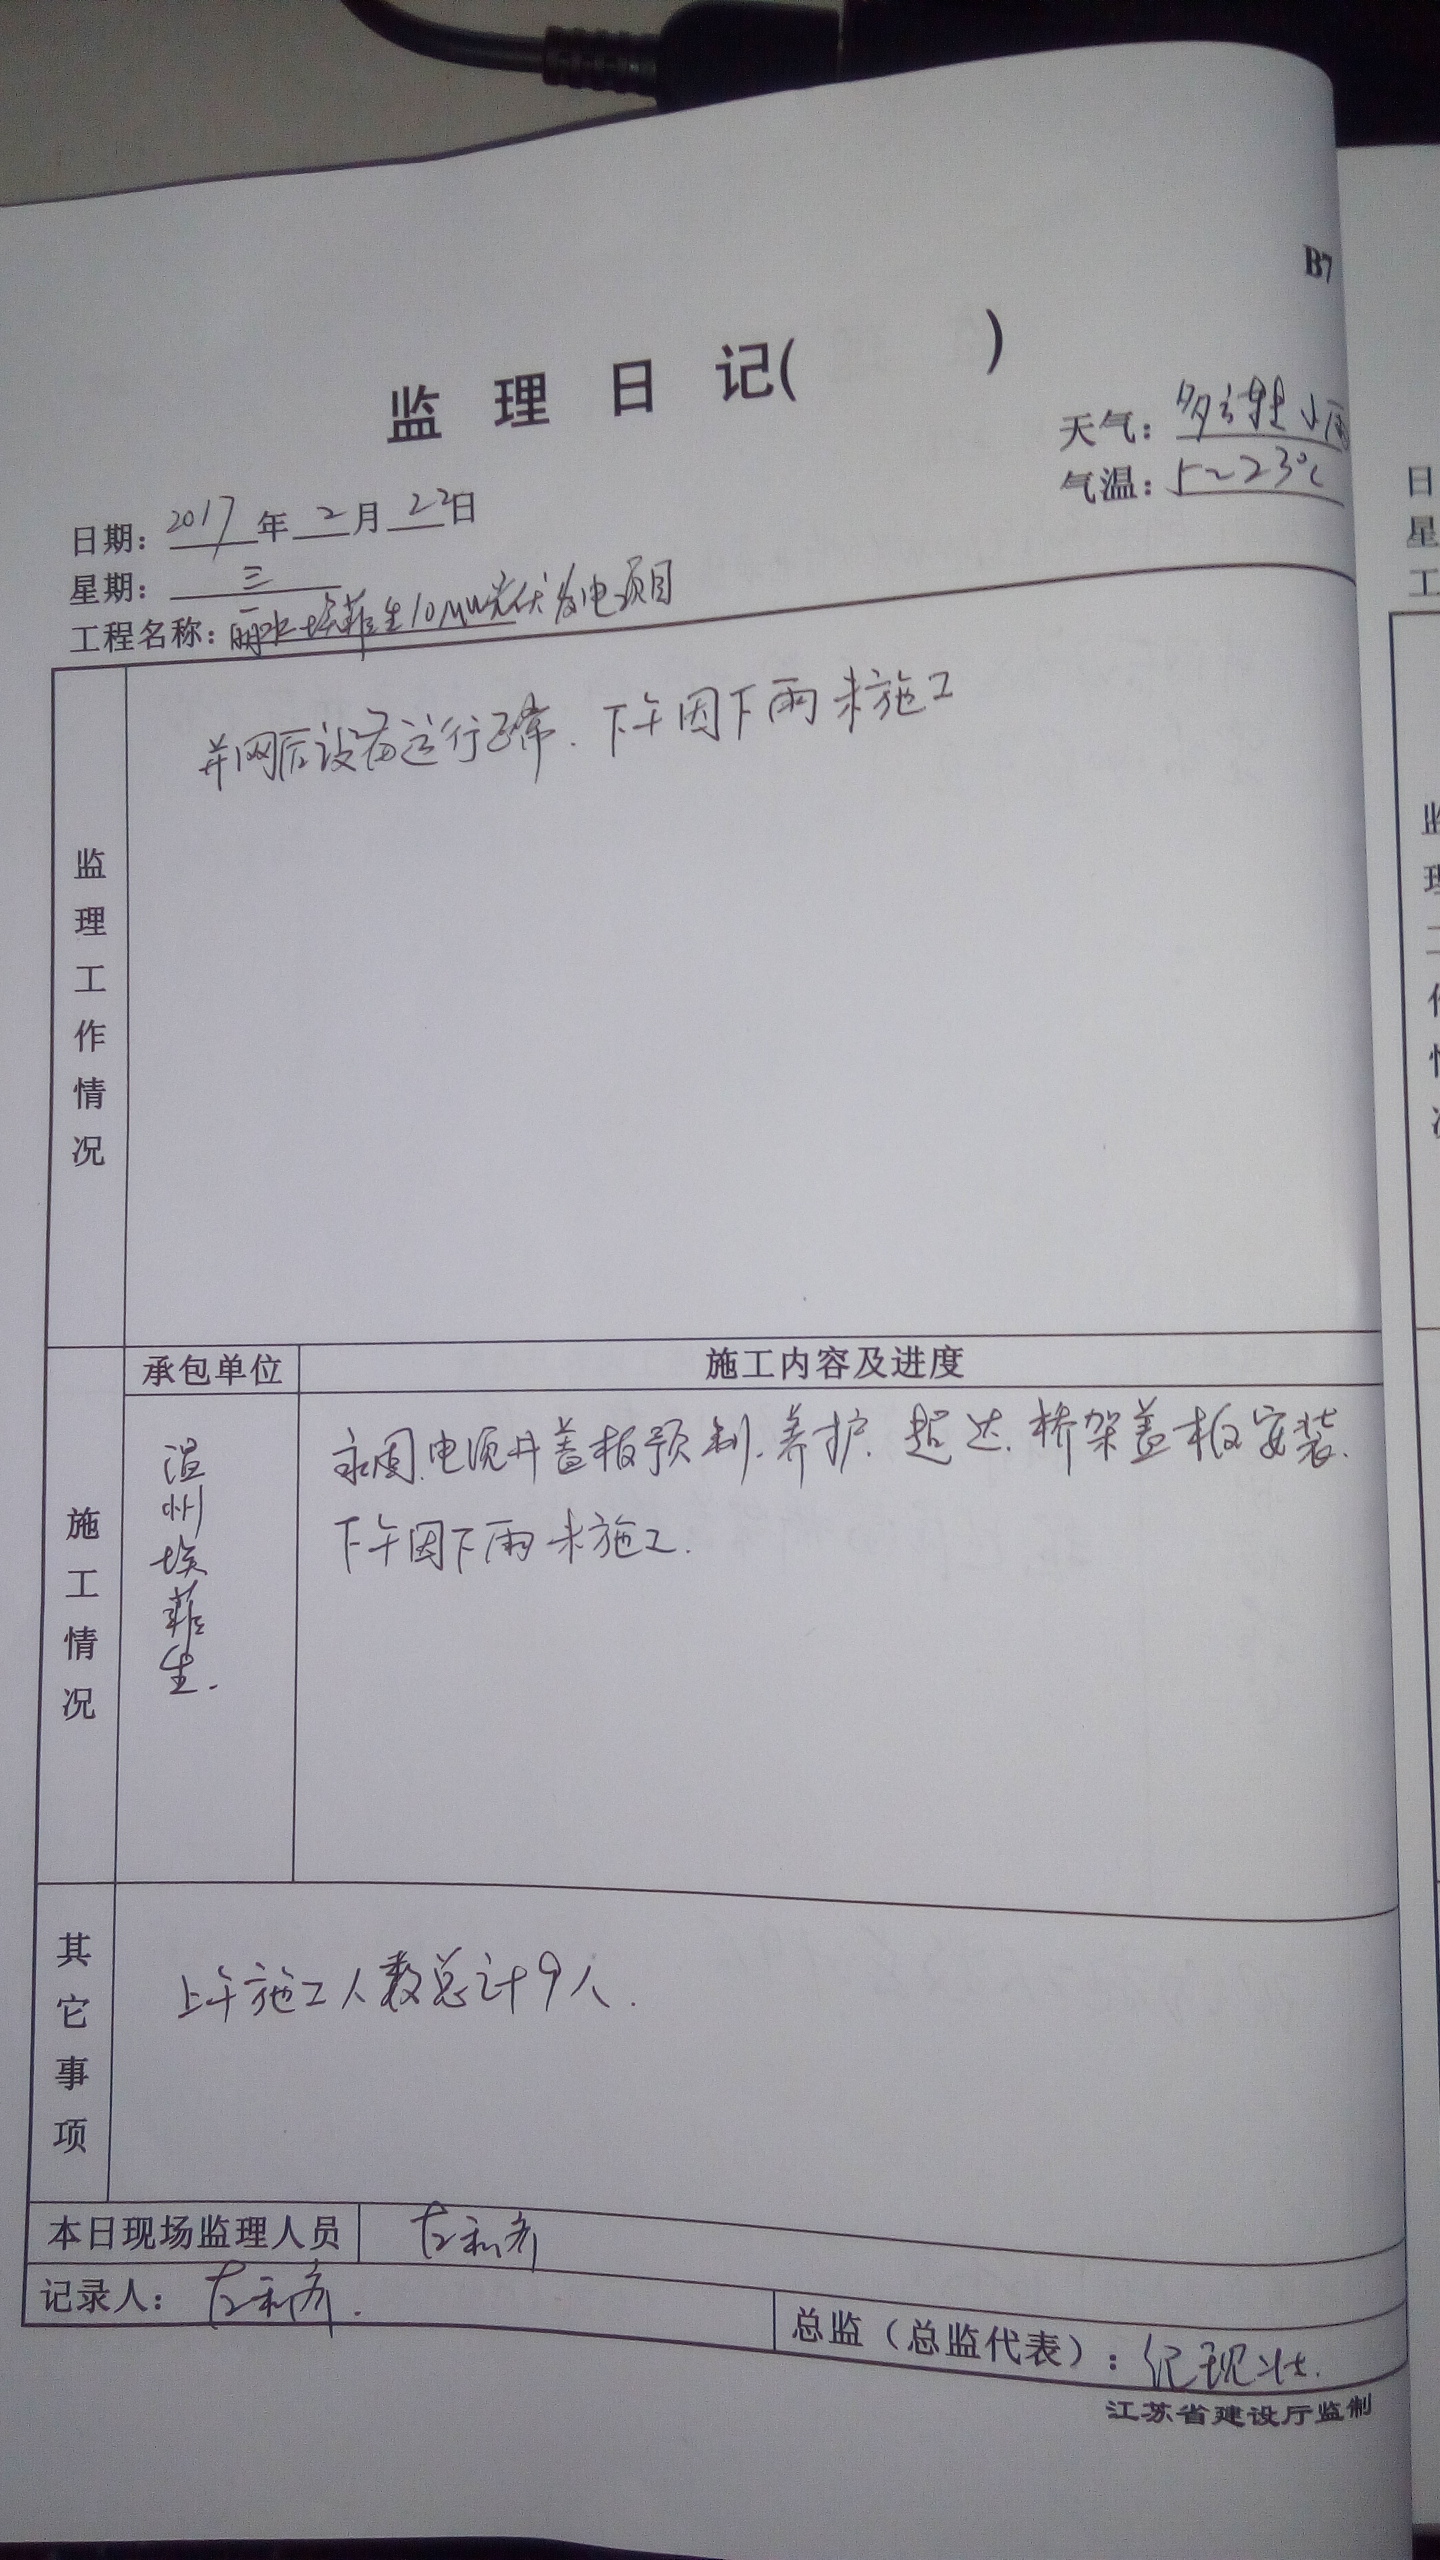 B7
监 理 日 记(        )
天气：多云转小雨
气温：5～23℃
日期：2017年2月22日
星期：三
工程名称：丽水埃菲生10MW光伏发电项目
监理工作情况
并网后设备运行正常.下午因下雨未施工
施工情况
承包单位
施工内容及进度
温州埃菲生.
永固.电缆井盖板预制.养护.超达.桥架盖板安装.
下午因下雨未施工.
其它事项
上午施工人数总计9人.
本日现场监理人员
记录人：
总监（总监代表）：纪现壮.
江苏省建设厅监制
日
星
工